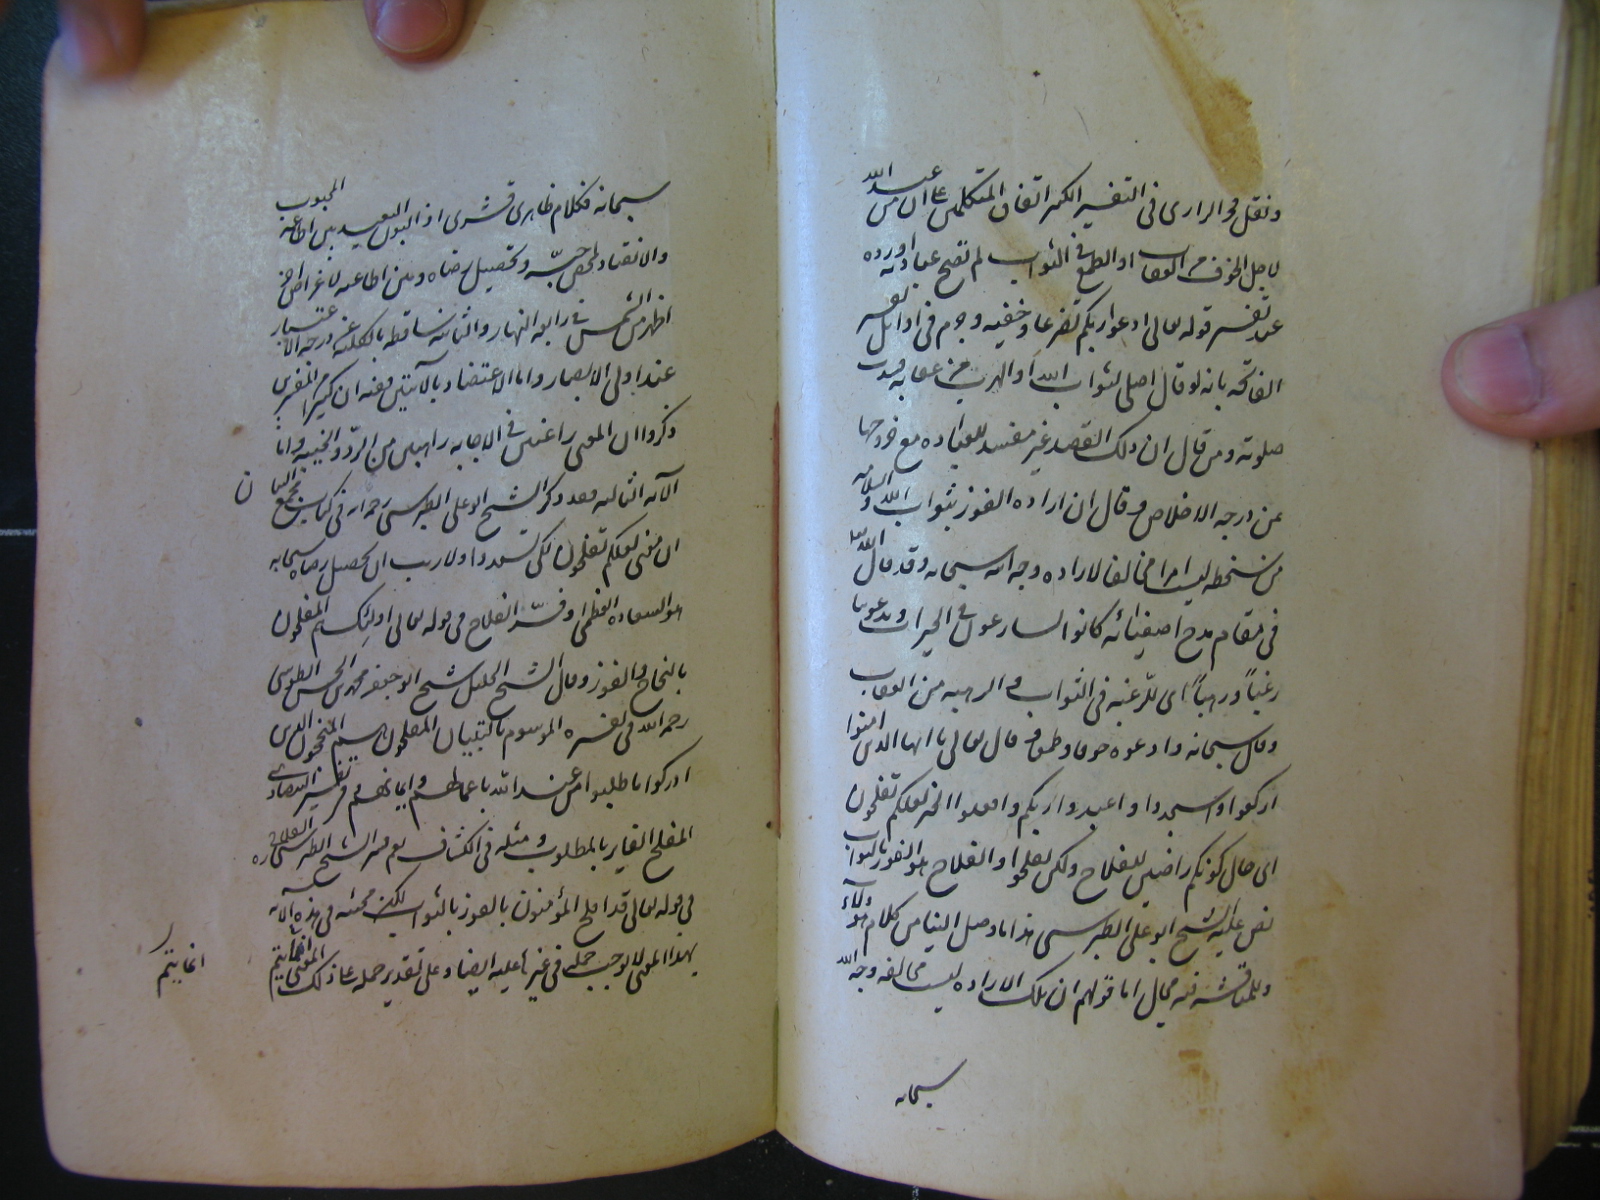 ونقل الفخر الرازى فى التفسير الكبير اتفاق المتكلمين على ان من عبد الله
لاجل الخوف من العقاب او الطمع فى الثواب لم تصح عبادته اورده
عند تفسير قوله تعالى ادعوا ربكم تضرعا وخفيه وجزم فى اوايل تفسير
الفاتحه بانه لو قال اصلى لثواب الله او الهرب من عقابه فسدت
صلوته ومن قال ان ذلك القصد غير مفسد للعباده مع خروجها
عن درجه الاخلاص وقال ان اراده الفوز بثواب الله والسلامه
من سخطه ليست امرا مخالفا لاراده وجه الله سبحانه وقد قال الله تعالى
فى مقام مدح اصفيائه كانوا يسارعون فى الخيرات ويدعوننا
رغباً ورهباً اى للرغبه فى الثواب والرهبه من العقاب
وقال سبحانه وادعوه خوفا وطمعا وقال تعالى يا ايها الذين امنوا
اركعوا واسجدوا واعبدوا ربكم وافعلوا الخير لعلكم تفلحون
اى حال كونكم راجين للفلاح ولكى تفلحوا والفلاح هو الفوز بالثواب
نص عليه الشيخ ابو على الطبرسى هذا ما وصل الينا من كلام هؤلاء
وللمناقشه فيه مجال اما قولهم ان تلك الاراده ليست مخالفه لوجه الله
سبحانه
سبحانه فكلام ظاهرى قشرى اذ البون البعيد بين اطاعه المحبوب
والانقياد لمحض حبّه وتحصيل رضاه وبين اطاعته لاغراض اخر
اظهر من الشمس فى رابعه النهار والثانيه ساقطه بالكليه عن درجه الاعتبار
عند اولى الابصار واما الاعتضاد بالآيتين ففيه ان كثيرا من المفسرين
ذكروا ان المعنى راغبين فى الاجابه راهبين من الردّ والخيبه واما
الآيه الثالثه فقد ذكر الشيخ ابو على الطبرسى رحمه الله فى كتاب مجمع البيان
ن
ان معنى لعلكم تفلحون لكى تسعدوا ولا ريب ان تحصيل رضاه سبحانه
هو السعاده العظمى وفسّر الفلاح فى قوله تعالى اولئك هم المفلحون
بالنجاح والفوز وقال الشيخ الجليل شيخ ابو جعفر محمد بن الحسن الطوسى
رحمه الله فى تفسيره الموسوم بالتبيان المفلحون هم المنجحون الذين
ادركوا ما طلبوا من عند الله باعمالهم وايمانهم وفى تفسير البيضاوى
المفلح الفايز بالمطلوب ومثله فى الكشاف نعم فسر الشيخ الطبرسى الفلاح
فى قوله تعالى قد افلح المؤمنون بالفوز بالثواب لكن مجيئه فى هذه الآيه
بهذا المعنى لا يوجب حمله فى غيرها عليه ايضا وعلى تقدير حمله على ذلك المعنى انما يتم
انما يتم